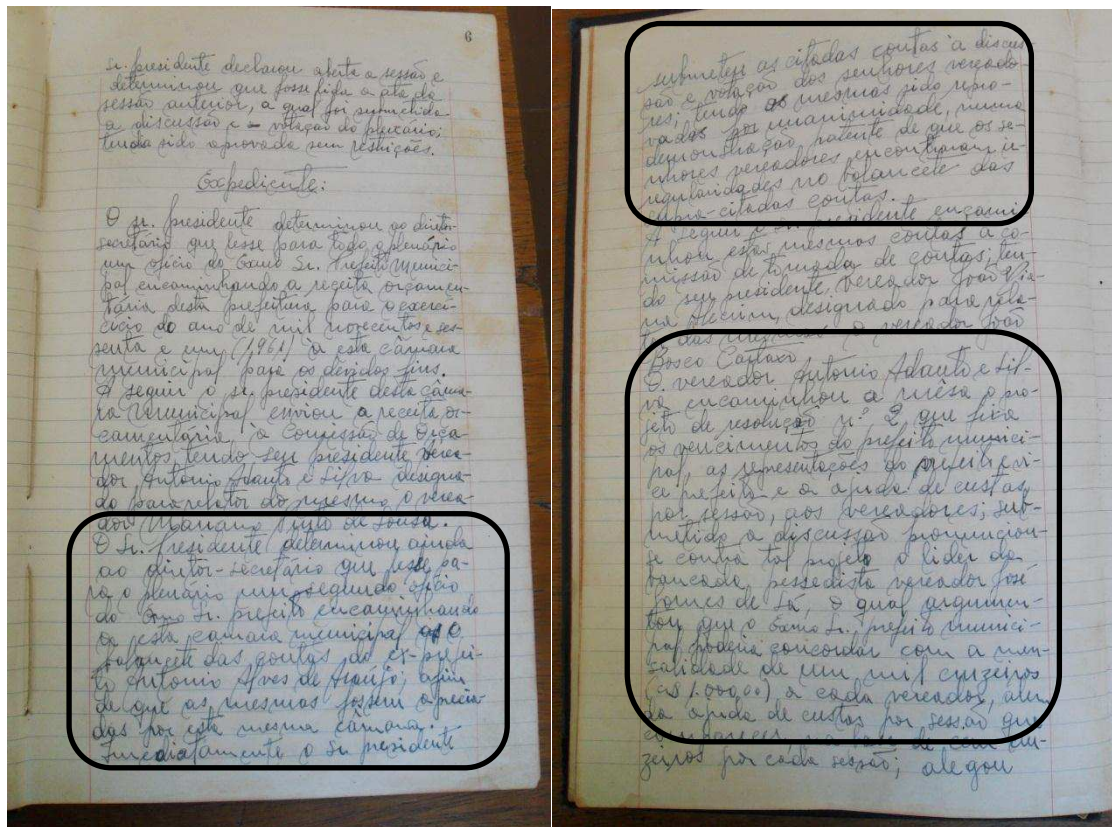 6
Sr. presidente declarou aberta a sessão e
determinou que fosse lida a ata da
sessão anterior, a qual foi submetida
a discussão e a votação do plenário;
tendo sido aprovada sem restrições.
Expediente:
O sr. presidente determinou ao diretor-
secretário que lesse para todo o plenário
um ofício do Exmo Sr. Prefeito Munici-
pal encaminhando a receita orçamen-
tária desta prefeitura para o exercí-
cio do ano de mil novecentos e ses-
senta e um (1,961) à esta câmara
municipal para os devidos fins.
A seguir o sr. presidente desta câma-
ra municipal enviou a receita or-
çamentária, à Comissão de Orça-
mentos tendo seu presidente verea-
dor Antonio Adauto e Silva designa-
do para relator do mesmo o verea-
dor Mariano Pinto de Sousa.
O Sr. Presidente determinou ainda
ao diretor-secretário que lesse pa-
ra o plenário um segundo ofício
do Exmo Sr. prefeito encaminhando
a esta câmara municipal o
balancete das contas do ex-prefei-
to Antonio Alves de Araújo; afim
de que as mesmas fossem aprecia-
das por esta mesma câmara.
Imediatamente o Sr. presidente
submeteu as citadas contas a discus-
são e votação dos senhores vereado-
res; tendo as mesmas sido repro-
vadas por unanimidade, numa
demonstração patente de que os se-
nhores vereadores encontraram ir-
regularidades no balancete das
supra-citadas contas.
A seguir o sr. presidente encami-
nhou estas mesmas contas a co-
missão de tomada de contas; ten-
do seu presidente, vereador João Via-
na designado para rela-
tor das mesmas o vereador João
Bosco Cartaxo.
O vereador Antonio Adauto e Sil-
va encaminhou a mesa o pro-
jeto de resolução nº 2 que fixa
os vencimentos do prefeito munici-
pal, as representações do prefeito e vi-
ce prefeito e a ajuda de custas,
por sessão, aos vereadores; sub-
mitido a discussão pronunciou-
se contra tal projeto o lider da
bancada pessedista vereador José
Gomes de Sá, o qual argumen-
tou que o Exmo Sr. prefeito munici-
pal poderia concordar com a men-
salidade de um mil cruzeiros
(cr$ 1.000,00) a cada vereador, alem
da ajuda de custas por sessão que
comparecer, na base de cem cru-
zeiros por cada sessão; alegou